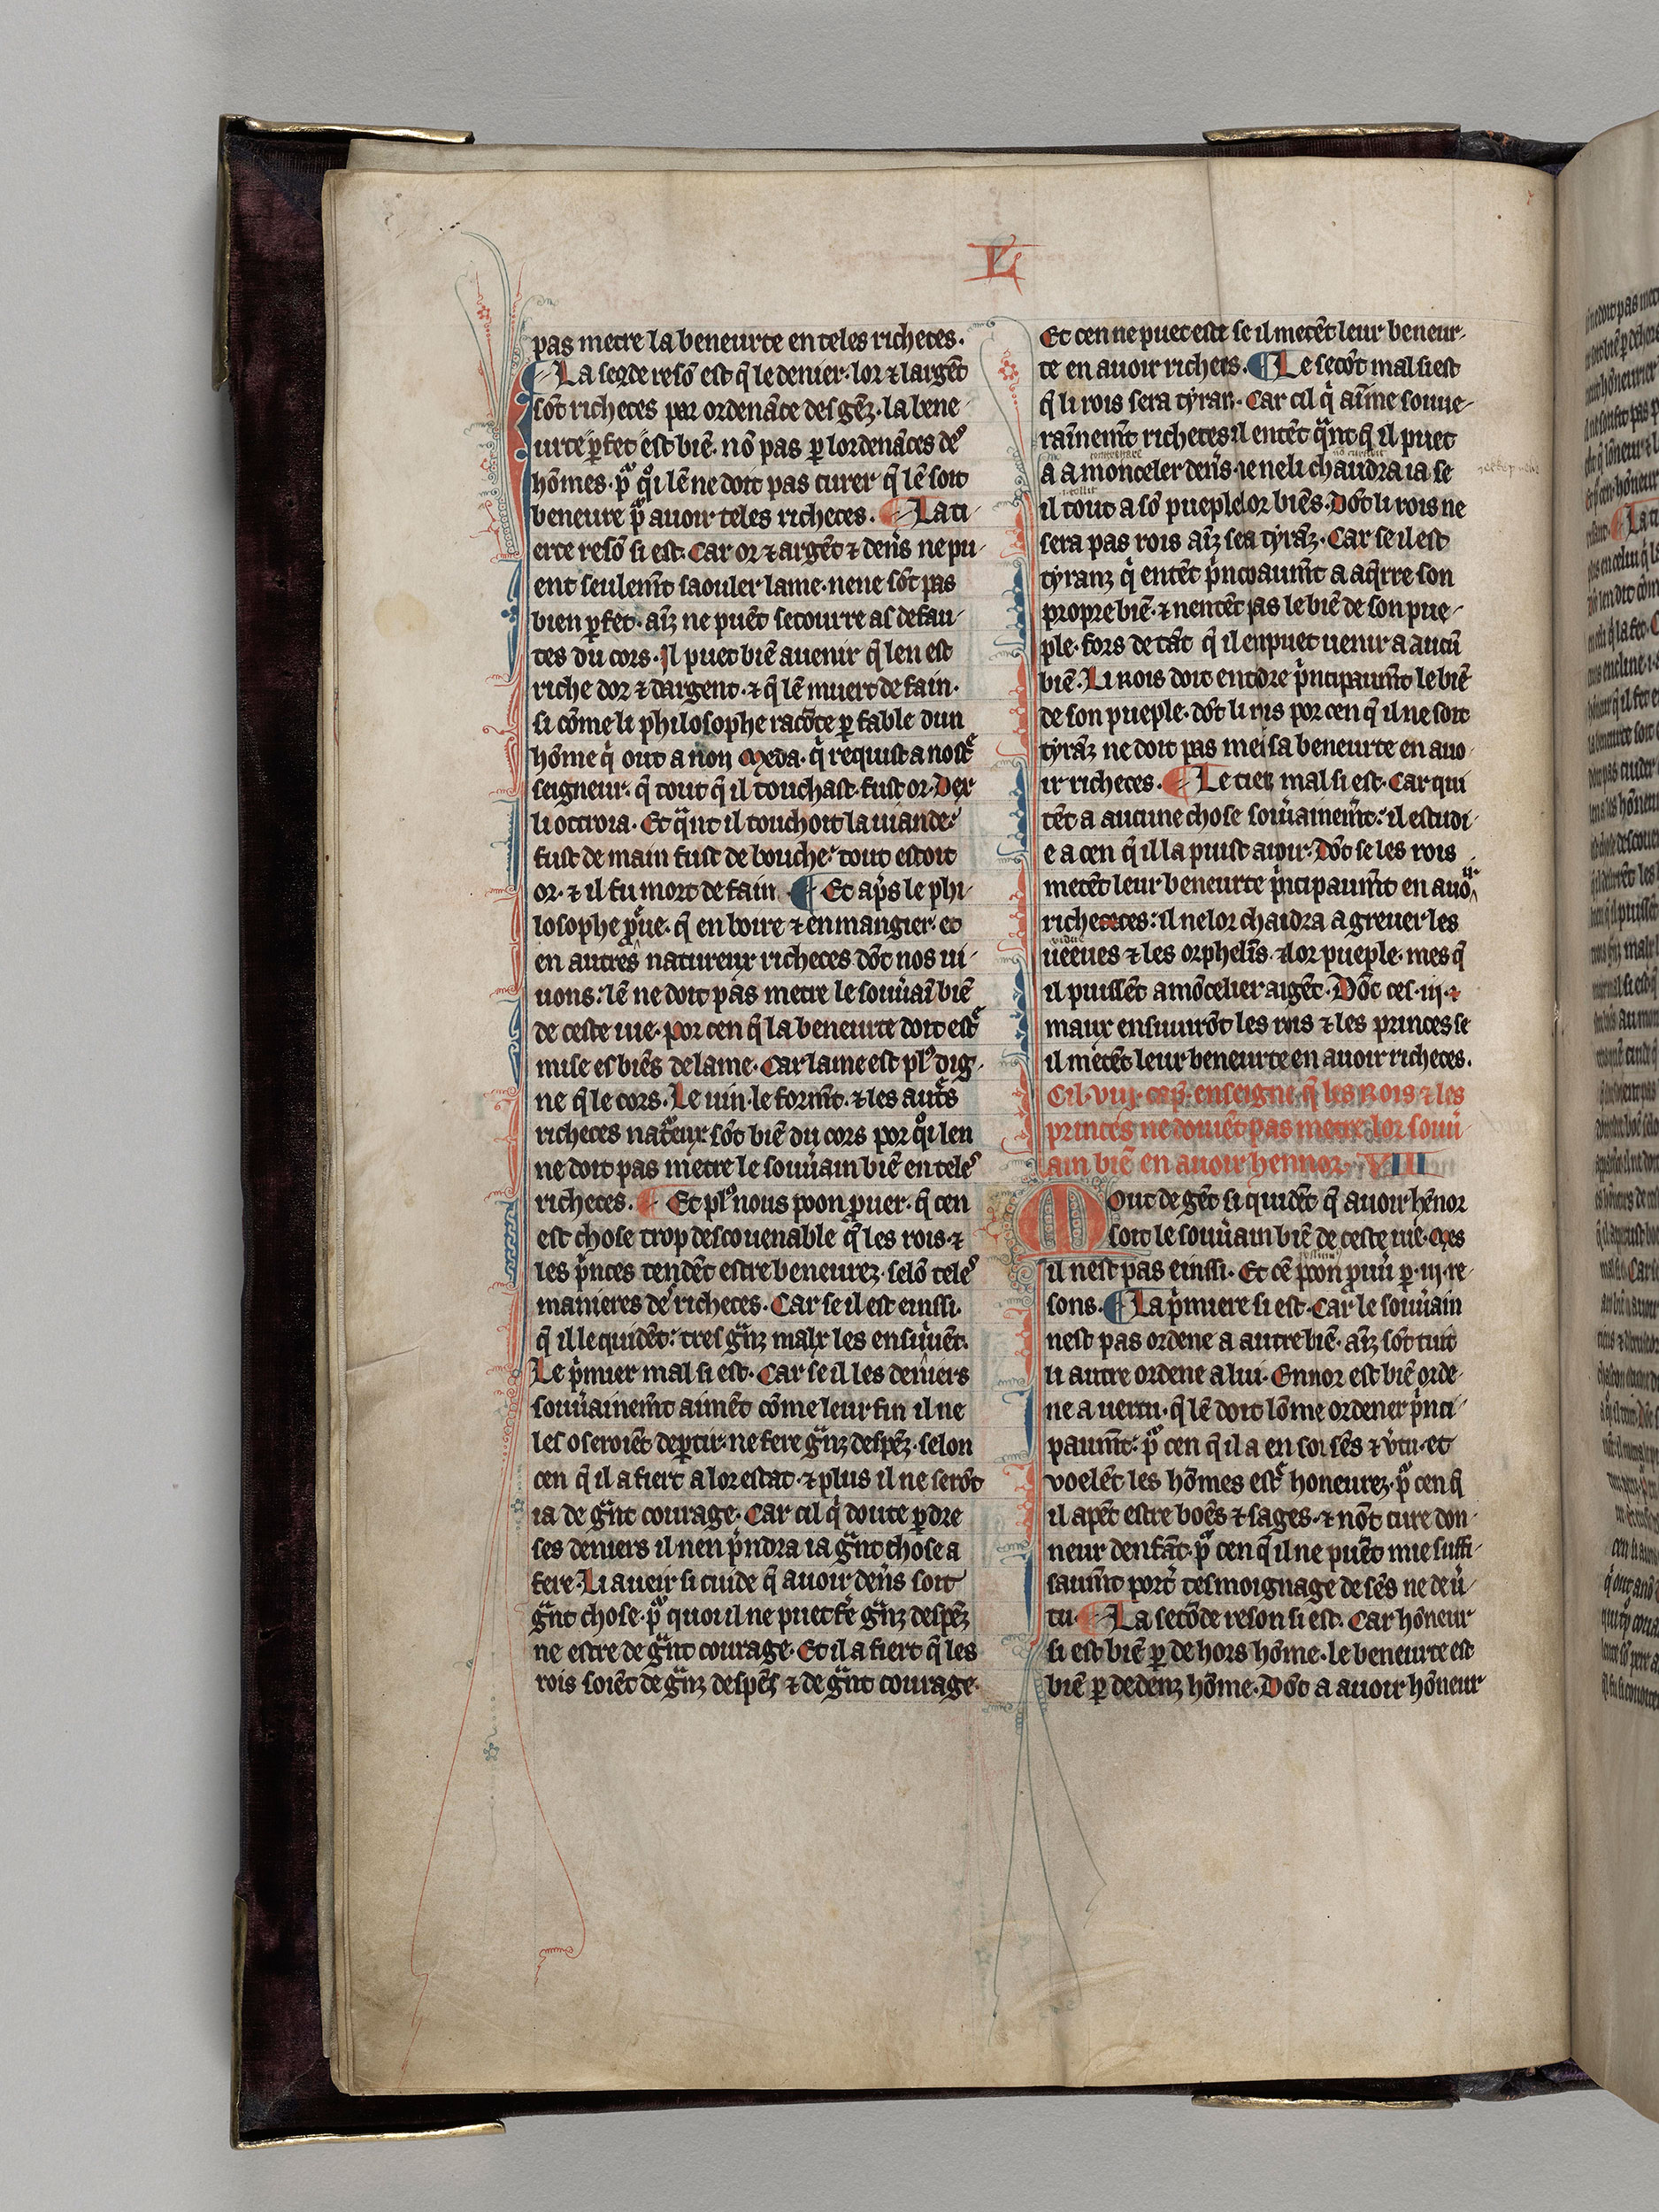 L
pas metre la beneurte en teles richeces.
¶ La segde resõ est q̃ le denier. lor ⁊ largẽt
sõt richeces par ordenãce des gẽz. la bene-
urte ꝑfet est biẽ. nõ pas ꝑ lordenãces des
hõmes. pᵒ qͦi lẽ ne doit pas curer q̃ lẽ soit
beneure pᵒ avoir teles richeces. ¶ La ti-
erce resõ si est. Car or ⁊ argẽt ⁊ den̾s ne pu-
ent seulem̃t saouler lame. ne ne sõt pas
bien ꝑfet. aĩz ne puẽt secourre as defau-
tes du cors. Il puet biẽ avenir q̃ len est
riche dor ⁊ dargent. ⁊ q̃ lẽ muert de fain.
si cõme li philosophe racõte ꝑ fable dun
hõme q̇ out a non Meda. q̇ requist a nostᵉ
seigneur. q̃ tout q̃ il touchast. fust or. Dex
li octroia. Et qᵃnt il touchoit la viande.
fust de main fust de bouche. tout estoit
or. ⁊ il fu mort de fain. ¶ Et ap̾s le phi-
losophe pᵒue. q̃ en boire ⁊ en mangier. et
en autres natureux richeces dõt nos vi-
vons: lẽ ne doit pas metre le souv̾aĩ biẽ
de ceste vie. por cen q̃ la beneurte doit estᵉ
mise es biẽs de lame. Car lame est plꝰ dig-
ne q̃ le cors. Le vin. le form̃t. ⁊ les autᵉs
richeces natᵉeux sõt biẽ du cors por qͦi len
ne doit pas metre le souv̾ain biẽ en teles
richeces. ¶ Et plꝰ nous poon ꝓuer. q̃ cen
est chose trop descovenable q̃ les rois. ⁊
les p̍nces tendẽt estre beneurez. selõ teles
manieres de richeces. Car se il est einssi.
q̃ il le quidẽt: tres gᵃnz malx les ensuvẽt.
Le p̍mier mal si est. Car se il les deniers
souv̾ainem̃t aimẽt cõme leur fin il ne
les oseroiẽt deꝑtir. ne fere gᵃnz despẽz. selon
cen q̃ il afiert a lor estat. ⁊ plus il ne serõt
ia de gᵃnt courage. Car cil q̇ doute ꝑdre
ses deniers il nen p̍ndra ia gᵃnt chose a
fere. Li aveir si cuide q̃ avoir den̾s soit
gᵃnt chose. pᵒ quoi il ne puet fẽ gᵃnz despẽz
ne estre de gᵃnt courage. Et il afiert q̃ les
rois soiẽt de gᵃnz despẽs ⁊ de gᵃnt courage.
Et cen ne puet estre se il metẽt leur beneur-
te en avoir richeces. ¶ Le secõt mal si est
q̃ li rois sera tyran. Car cil q̇ aĩme souve-
raĩnem̃t richeces il entẽt qᵃnt q̃ il puet
a amonceler den̾s. ie ne li chaudra ia se
il tout a sõ pueple lor biẽs. Dõt li rois ne
sera pas rois aĩz sea tyrãz. Car se il est
tyranz q̇ entẽt p̍ncipaum̃t a aq̍rre son
propre biẽ. ⁊ nentẽt pas le biẽ de son pue-
ple. fors de tãt q̃ il en puet venir a aucũ
biẽ. Li rois doit entdre p̍ncipaum̃t le biẽ
de son pueple. dõt li rois por cen q̃ il ne soit
tyrãz ne doit pas metre sa beneurte en avo-
ir richeces. ¶ Le tierz mal si est. Car qui
tẽt a aucune chose souv̾ainem̃t: il estudi-
e a cen q̃ il la puist avoir. Dõt se les rois
metẽt leur beneurte p̍ncipaum̃t en avo ir
richeces: il ne lor chaudra a grever les
veeves ⁊ les orphelĩs. ⁊ lor pueple. mes q̃
il puissẽt amõceler argẽt. Dõt ces .iij.
maux ensuivrõt les rois ⁊ les princes se
il metẽt leur beneurte en avoir richeces.
Cil .viij. cap̃. enseigne q̃ les Rois ⁊ les
princes ne doivẽt pas metre lor souv̾-
ain biẽ en avoir hennor. VIII
Mout de gẽt si quidẽt q̃ avoir hẽnor
soit le souv̾ain biẽ de ceste vie. Mes
il nest pas einssi. Et cẽ poon ꝓuu̾ ꝑ .iij. re-
sons. ¶ La p̍miere si est. Car le souv̾ain
nest pas ordene a autre biẽ. aĩz sõt tuit
li autre ordene a lui. Ennor est biẽ orde-
ne a vertu. q̃ lẽ doit lõme ordener p̍nci-
paum̃t: pᵒ cen q̃ il a en soi sẽs ⁊ v̾tu. et
voelẽt les hõmes estᵉ honeurez. pᵒ cen q̃
il apẽt estre boẽs ⁊ sages. ⁊ nõt cure don-
neur denfãt. pᵒ cen q̃ il ne puẽt mie suffi-
saum̃t port̾ tesmoignage de sẽs ne de v̾-
tu. ¶ La secõde reson si est. Car hõneur
si est biẽ ꝑ de hors hõme. le beneurte est
biẽ ꝑ dedenz hõme. Dõt a avoir hõneur